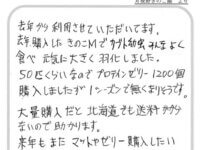 去年から利用させていただいてます。
去年購入したきのこMでカブト幼虫みんなよく
食べ元気に大きく羽化しました。
50匹くらいなのでプロテインゼリー1200個
購入しましたが1シーズンで無くなりそうです。
大量購入だと北海道でも送料がかから
ないので助かります。
来年もまたマットやゼリー購入したい